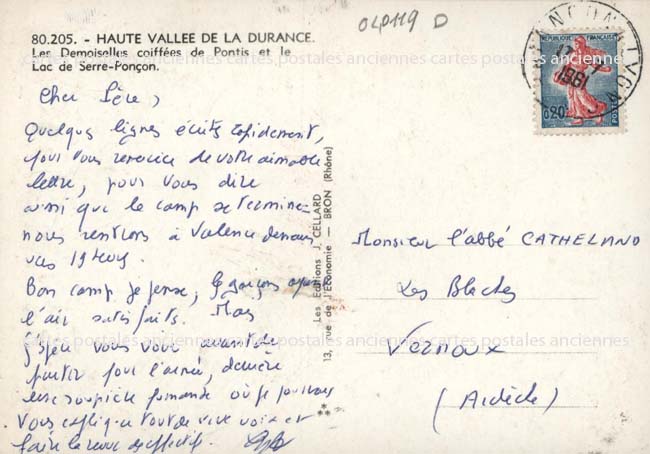 80.205. - HAUTE VALLEE DE LA DURANCE.
Les Demoiselles coiffées de Pontis et le
Lac de Serre-Ponçon.
040119 D
REPUBLIQUE FRANÇAISE
1961
0,20
POSTES
cartes postales anciennes cartes postales anciennes cartes postales anciennes
Cher Père,
Quelques lignes écrites rapidement,
pour vous remercier de votre aimable
lettre, pour vous dire
ainsi que le camp se termine
nous rentrons à Valence demain
vers 19 heures.
Bon camp je pense, les garçons ayant
l'air satisfaits. Mais
j'espère vous voir avant de
partir pour l'armée, derrière
une soupière fumante où je pourrais
vous expliquer tout de vive voix et
faire le tour des effectifs.
Les Editions J. CELLARD
13, rue de l'Economie — BRON (Rhône)
Monsieur l'abbé CATHELAND
Les Blaches
Vernoux
(Ardèche)